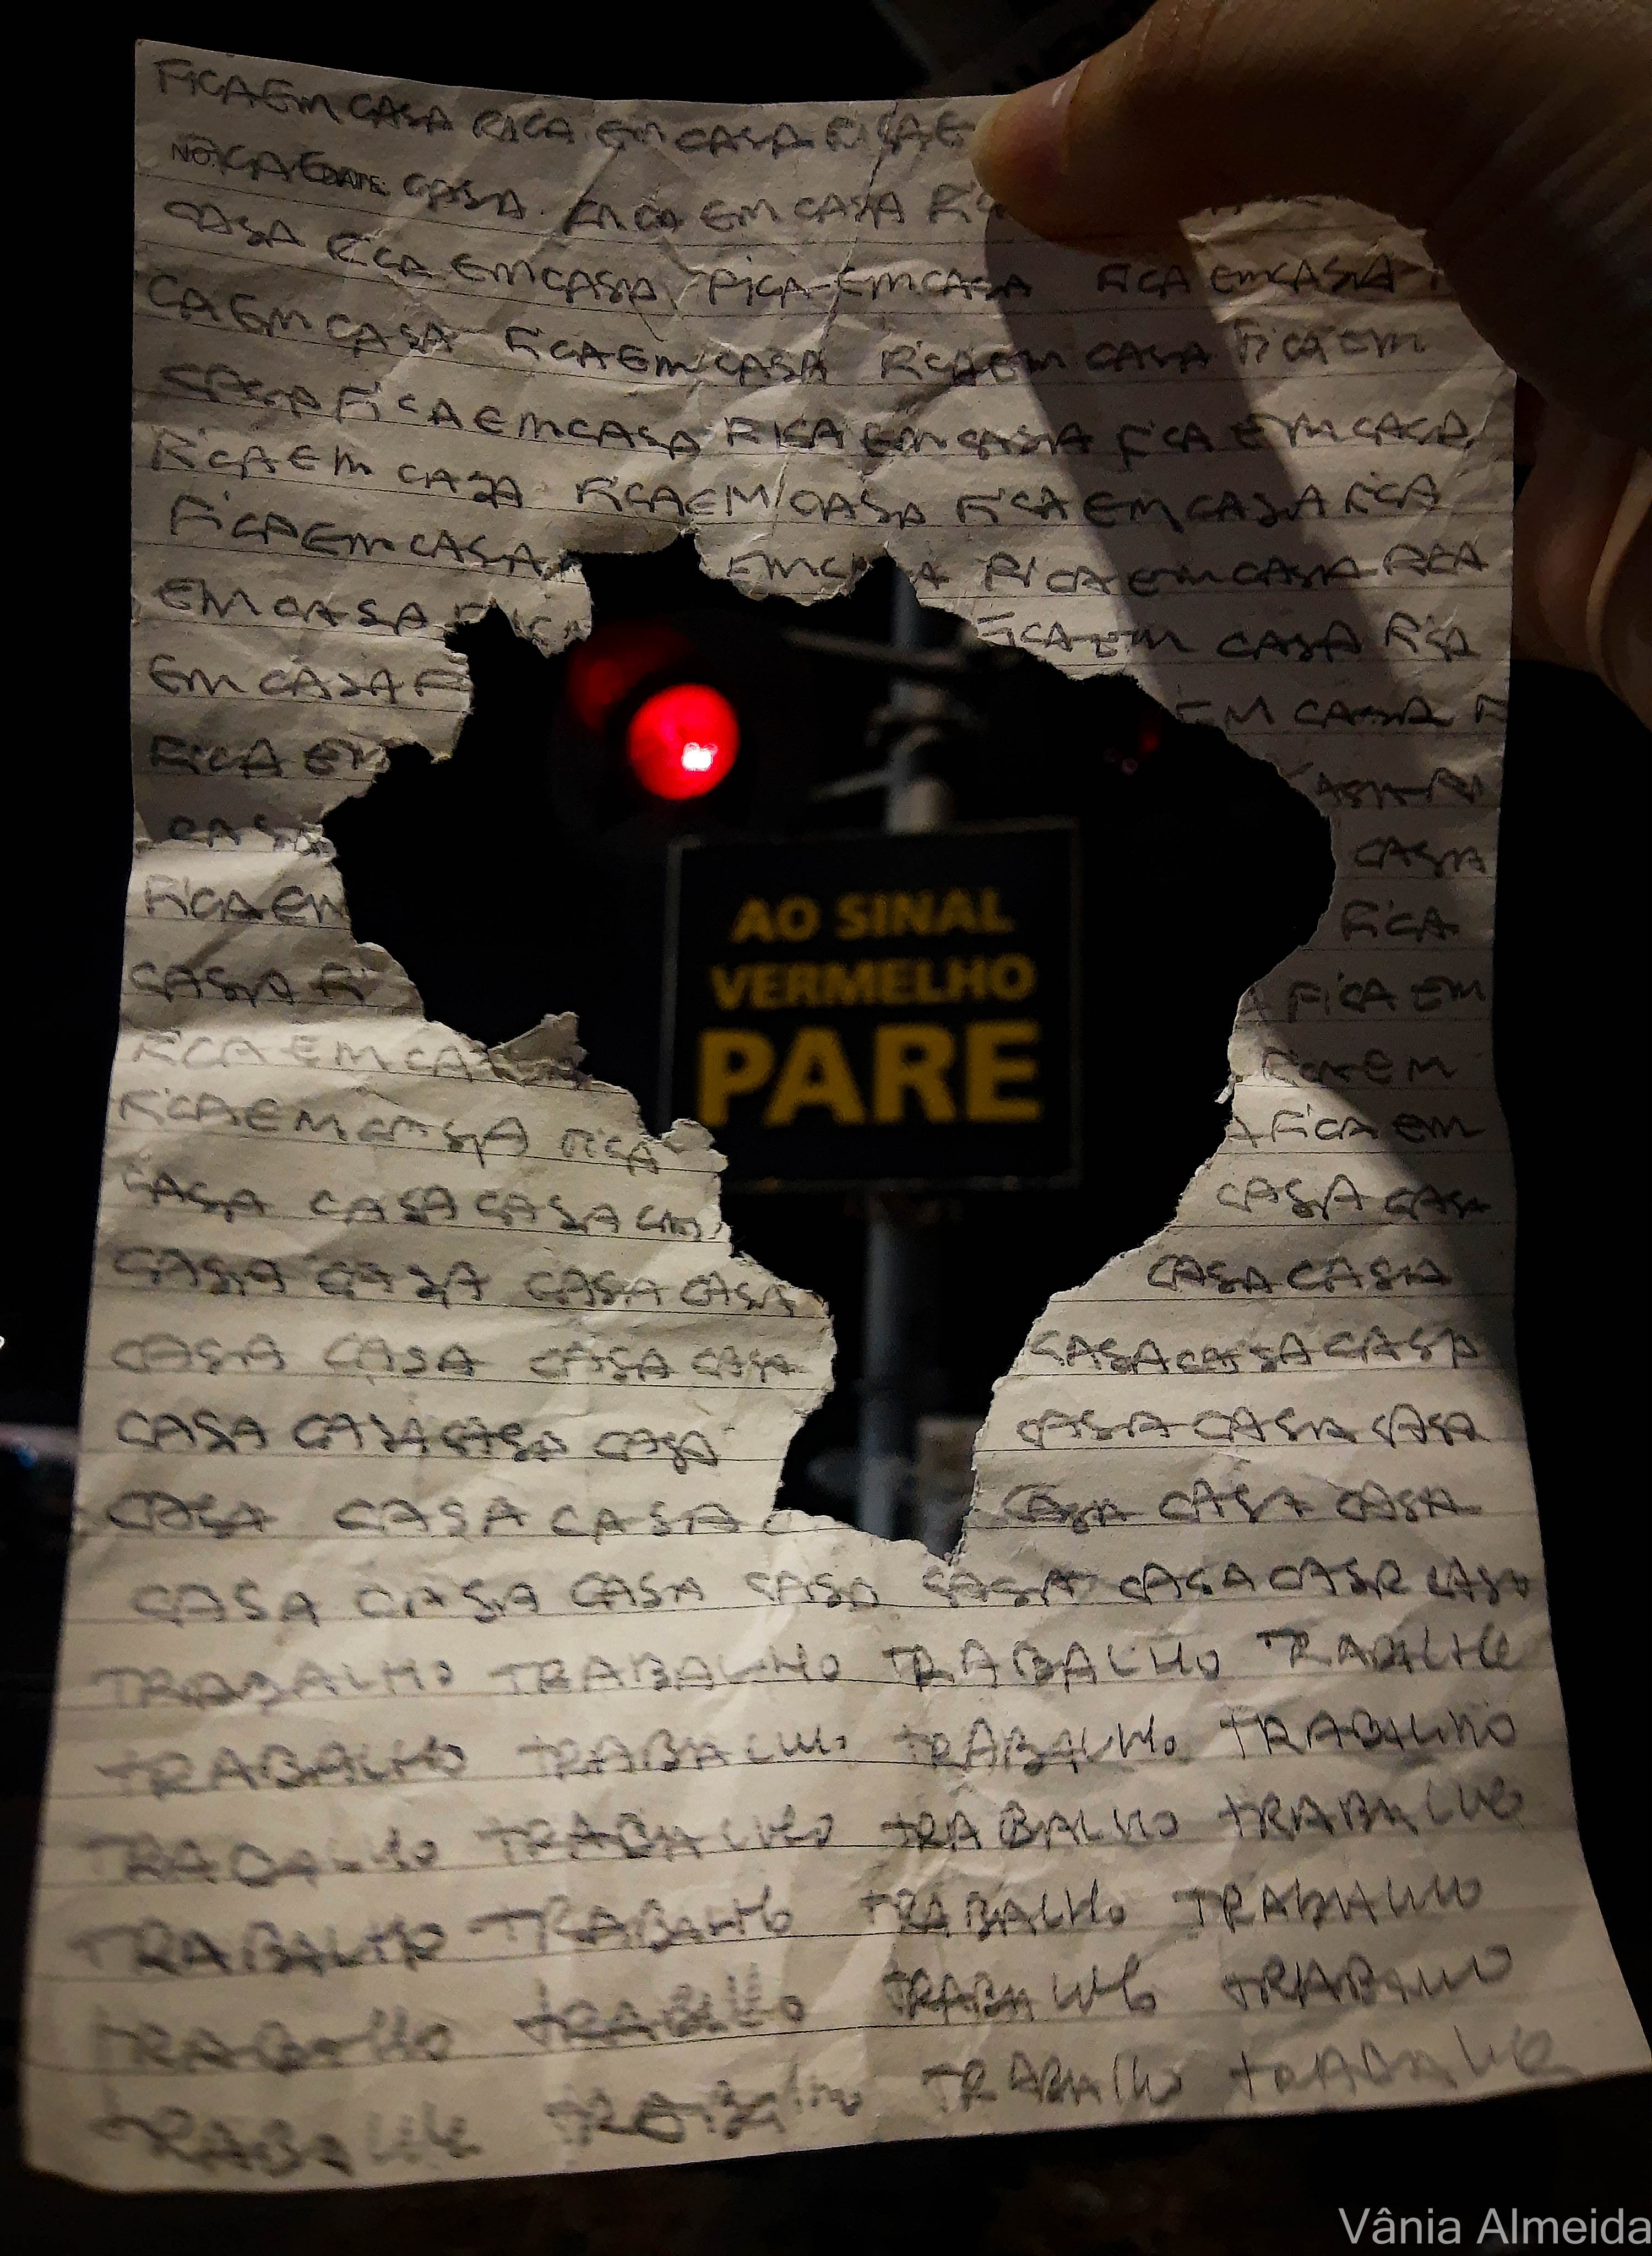 FICA EM CASA FICA EM CASA FICA E
NO. DATE CASA FICA EM CASA FIC
CASA FICA EM CASA FICA EM CASA FICA EM CASA FI
CA EM CASA FICA EM CASA FICA EM CASA FICA EM
CASA FICA EM CASA FICA EM CASA FICA EM CASA
FICA EM CASA FICA EM CASA FICA EM CASA FICA
FICA EM CASA EM CASA FICA EM CASA FICA
EM CASA FICA FICA EM CASA FICA
EM CASA F EM CASA F
FICA EM CASA FI
CASA CASA
FICA EM FICA
CASA FI A FICA EM
FICA EM CASA FICA EM
FICA EM CASA FICA A FICA EM
CASA CASA CASA CASA CASA
CASA CASA CASA CASA CASA CASA
CASA CASA CASA CASA CASA CASA CASA
CASA CASA CASA CASA CASA CASA CASA
CASA CASA CASA C CASA CASA CASA
CASA CASA CASA CASA CASA CASA CASA CASA
TRABALHO TRABALHO TRABALHO TRABALHO
TRABALHO TRABALHO TRABALHO TRABALHO
TRABALHO TRABALHO TRABALHO TRABALHO
TRABALHO TRABALHO TRABALHO TRABALHO
TRABALHO TRABALHO TRABALHO TRABALHO
TRABALHO TRABALHO TRABALHO TRABALHO
AO SINAL
VERMELHO
PARE
Vânia Almeida